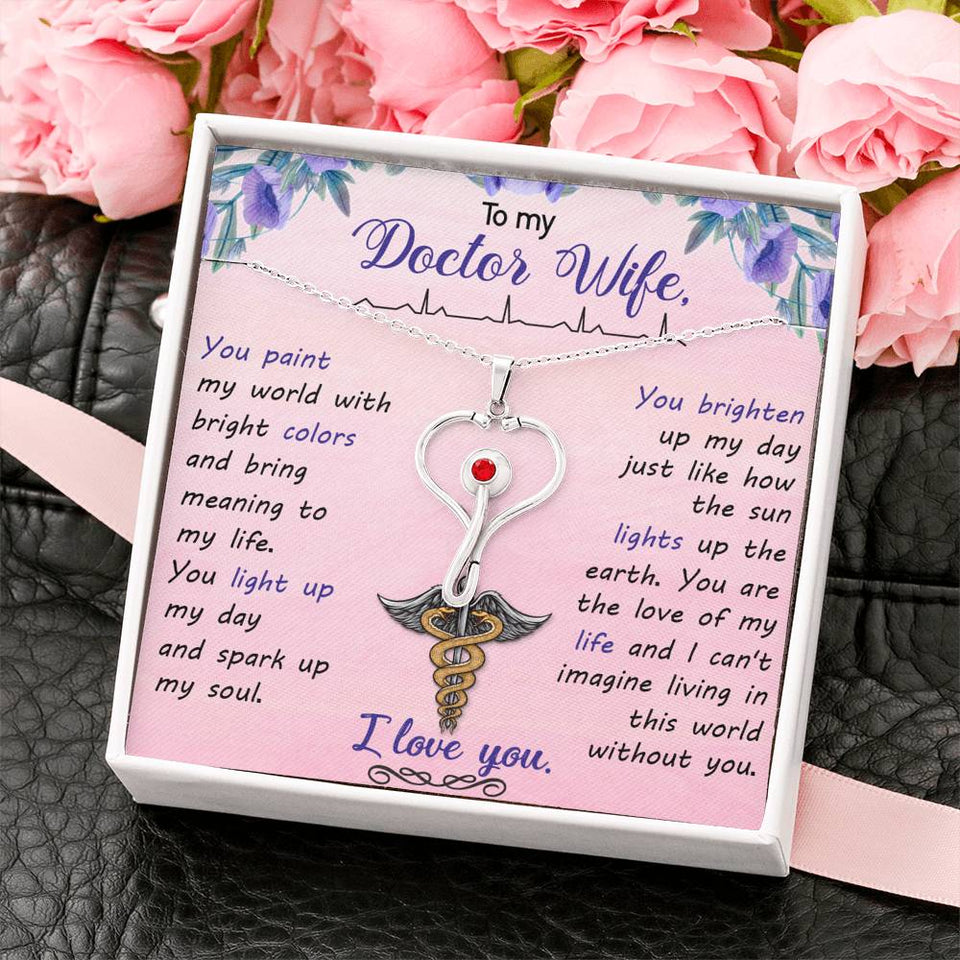 To my
Doctor Wife,
You paint
my world with
bright colors
and bring
meaning to
my life.
You light up
my day
and spark up
my soul.
You brighten
up my day
just like how
the sun
lights up the
earth. You are
the love of my
life and I can't
imagine living in
this world
without you.
I love you.